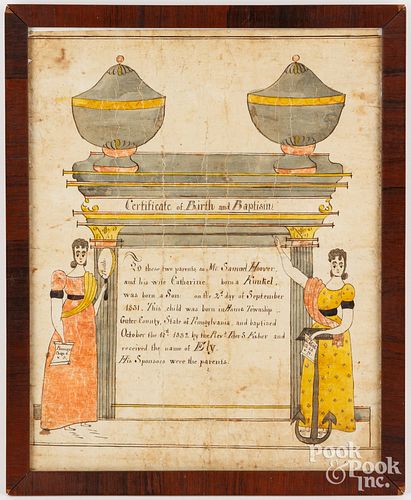 Certificate of Birth and Baptism:
To these two parents as Mr. Samuel Hoover,
and his wife Catharine, born a Kunkel,
was born a Son on the 2d. day of September
1831. This child was born in Township
County, State of Pennsylvania, and baptized
October the 14th. 1832. by the Revd. Peter S. Fisher and
received the name of Ely.
His Sponsors were the parents.
POOK
& POOK
INC.